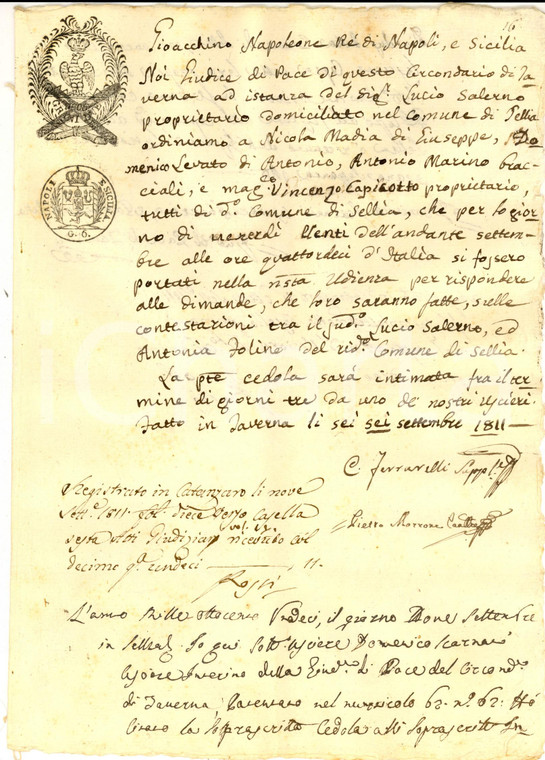 16
Gioacchino Napoleone Ré di Napoli, e Sicilia
Noi Giudice di Pace di questo Circondario di Ta
verna ad istanza del sigr. Lucio Salerno
proprietario domiciliato nel Comune di Sellia
ordiniamo a Nicola Madia di Giuseppe, Do
menico Levato di Antonio, Antonio Marino brac
ciali, e magco. Vincenzo Capicotto proprietario,
tutti di do. Comune di Sellia, che per lo gior
no di venerdì venti dell'andante settem
bre alle ore quattordeci d'Italia si fossero
portati nella nsta Udienza per rispondere
alle dimande, che loro saranno fatte, sulle
contestazioni tra il sudo. Lucio Salerno, ed
Antonia Folino del ridco. Comune di Sellia.
La pte cedola sarà intimata fra il ter
mine di giorni tre da uno de' nostri uscieri.
Fatto in Taverna li sei sei settembre 1811
NAPOLI E SICILIA
G. 6.
C. Ferrarelli
Registrato in Catanzaro li nove
Sette. 1811 diece verso Casella
sesta Atti Giudiziarj ricevuto col
decimo
11.
Pietro Marrone
Rossi
L'anno Mille ottocento Undeci, il giorno Nove Settembre
in Sellia. Io qui sotto. Usciere Domenico Scarnà
Usciere Interino della Giudra. di Pace del Circondo.
di Taverna, Patentato nel 62. n.o 62: Hó
la soprascritta Cedola alli soprascritti